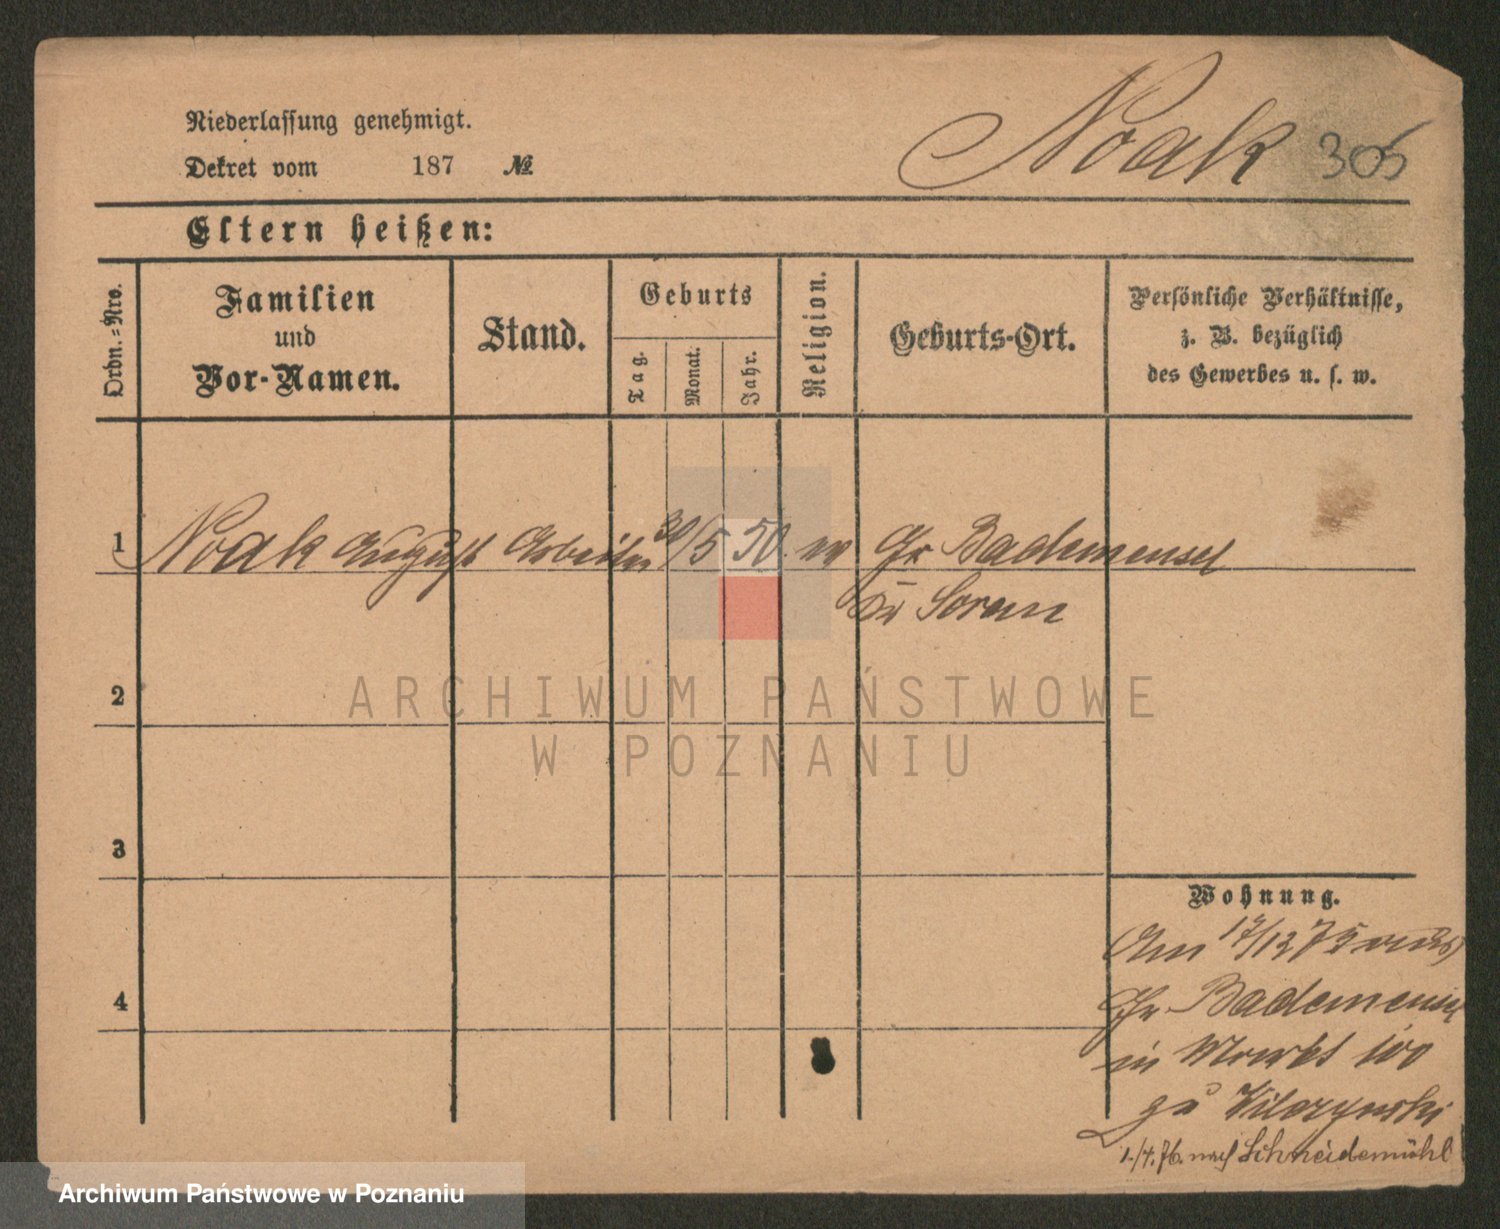 Niederlassung genehmigt.
Noak 305
Dekret vom 187 №
Eltern heißen:
Ordn.-Nro.
Familien
und
Vor-Namen.
Stand.
Geburts
Tag.
Monat.
Jahr.
Religion.
Geburts-Ort.
Persönliche Verhältnisse,
z. B. bezüglich
des Gewerbes u. s. w.
1 Noak August Arbeiter 30/5 50 ev Gr Bademeusel
Kr Sorau
2
3
4
Wohnung.
Am 17/12 75 aus
Gr Bademeusel
in Markt 100
zu
1./4. 76. nach Schneidemühl
ARCHIWUM PAŃSTWOWE
W POZNANIU
Archiwum Państwowe w Poznaniu